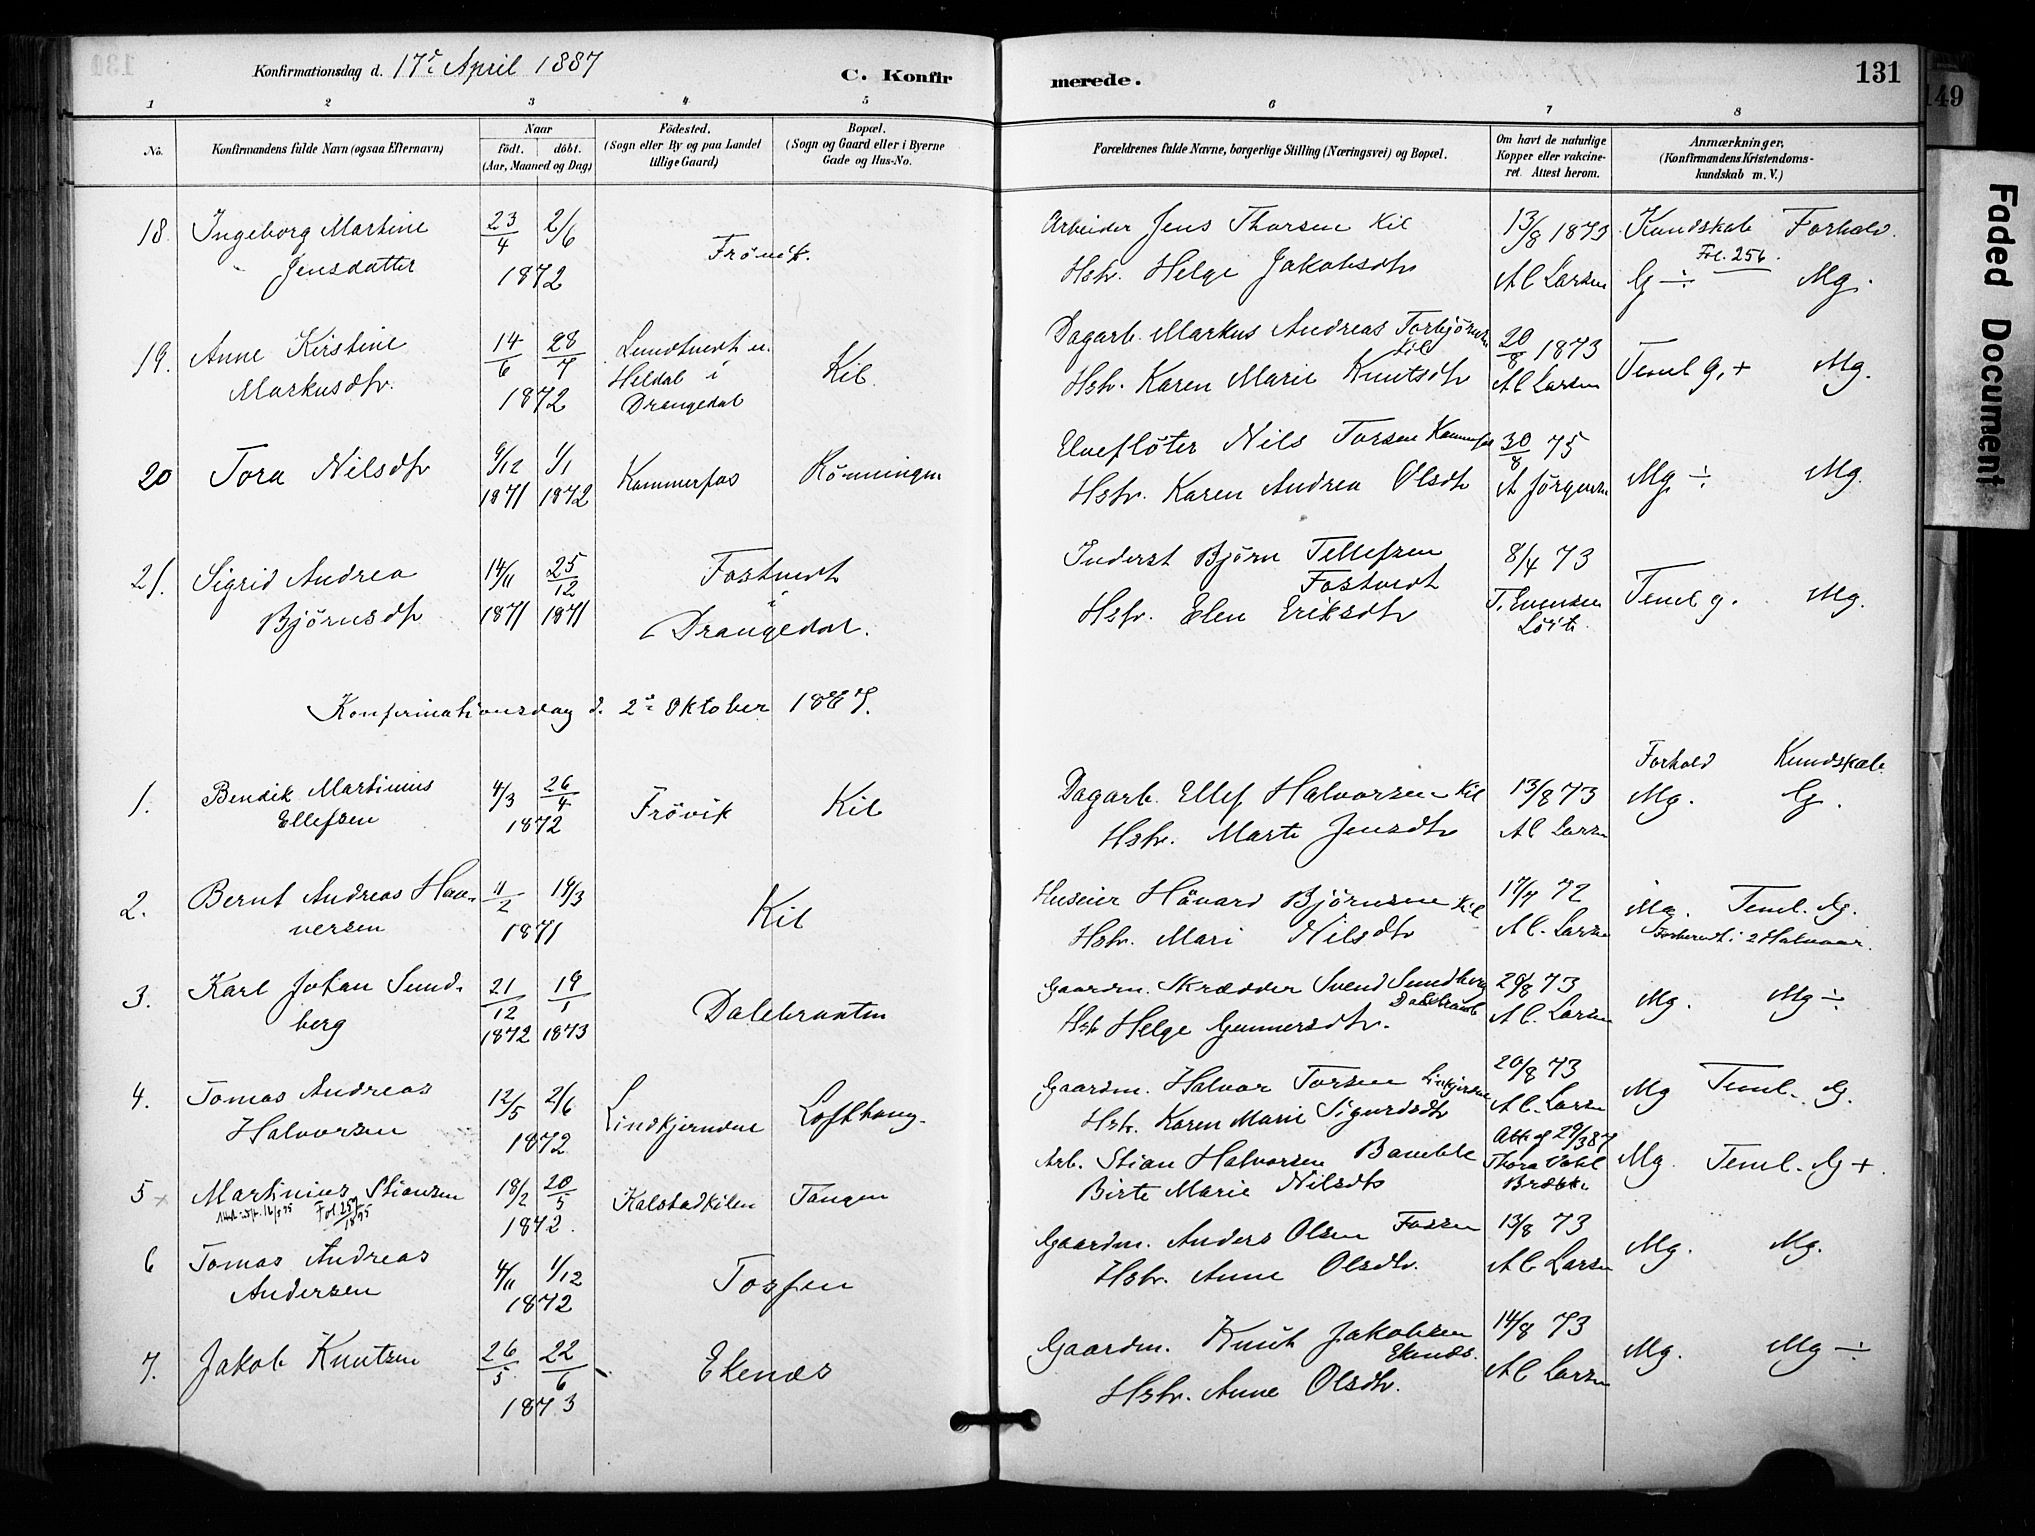 Konfirmationsdag d. 17de April 1887
C. Konfir
merede.
131
149
Faded Document
1 2 3 4 5 6 7 8
No.
Konfirmandens fulde Navn (ogsaa Efternavn)
Naar
födt. döbt.
(Aar, Maaned og Dag)
Födested.
(Sogn eller By og paa Landet
tillige Gaard)
Bopæl.
(Sogn og Gaard eller i Byerne
Gade og Hus-No.
Forældrenes fulde Navne, borgerlige Stilling (Næringsvei) og Bopæl.
Om havt de naturlige
Kopper eller vakcine-
ret. Attest herom.
Anmærkninger,
(Konfirmandens Kristendoms-
kundskab m. V.)
18. Ingeborg Martine 23/4 2/6 Frövik. Arbeider Jens Thorsen Kil 13/8 1873 Kundskab Forhold.
Fol. 256.
Jensdatter 1872 Hstr. Helge Jakobsdtr A C Larsen G ÷ Mg.
19. Anne Kirstine 14/6 28/7 Lundtvedt u. Kil. Dagarb. Markus Andreas Torbjörnsen 20/8 1873 Teml G, + Mg.
Kil
Markusdtr. 1872 Heldal i Hstr. Karen Marie Knutsdtr A C Larsen
Drangedal
20 Tora Nilsdtr 9/12 1/1 Kammerfos Rönningen Elveflöter Nils Torsen Kammerfos 30/8 75 Mg ÷ Mg.
1871 1872 Hstr. Karen Andrea Olsdtr A Jörgensen
21. Sigrid Andrea 14/11 25/12 Fostvedt Inderst Björn Tellefsen 8/4 73 Teml g. Mg.
i Fostvedt
Björnsdtr 1871 1871 Drangedal. Hstr. Elen Eriksdtr T. Evensen
Konfirmationsdag d. 2den Oktober 1887.
Forhold Kundskab
1. Bendik Martinius 4/3 26/4 Frövik Kil Dagarb. Ellef Halvorsen Kil 13/8 73 Mg. G.
Ellefsen 1872 Hstr. Marte Jensdtr A C Larsen
2. Bernt Andreas Haa- 11/2 19/3 Kil Huseier Håvard Björnsen Kil 17/7 72 Mg. Teml. G.
versen 1871 Hstr. Mari Nilsdtr A C. Larsen Forberedt i 2 Halvaar.
3. Karl Johan Sund- 21/12 19/1 Dalebraaten Gaardm. Skrædder Svend Sundberg 20/8 73 Mg. Mg ÷
berg 1872 1873 Hstr Helge Gunnersdtr. A C. Larsen
4. Tomas Andreas 12/5 2/6 Lindkjernden Lofthaug. Gaardm. Halvor Torsen 20/8 73 Mg Teml. G.
Halvorsen 1872 Hstr. Karen Marie Sigurdsdtr A C. Larsen
5 × Martinius Stiansen 18/2 20/5 Kalstadkilen Tangen Arb. Stian Halvorsen Bamble Att. af 29/3 87 Mg. Teml. G +.
Thora Vahl
1872. Birte Marie Nilsdtr Brække
6 Tomas Andreas 4/11 1/12 Fossen Gaardm. Anders Olsen Fossen 13/8 73 Mg. Mg.
Andersen 1872 Hstr. Anne Olsdtr. A C Larsen
7. Jakob Knutsen 26/5 22/6 Ekenæs Gaardm. Knut Jakobsen 14/8 73 Mg. Mg ÷
Ekenæs.
1873 Hstr. Anne Olsdtr. A C Larsen